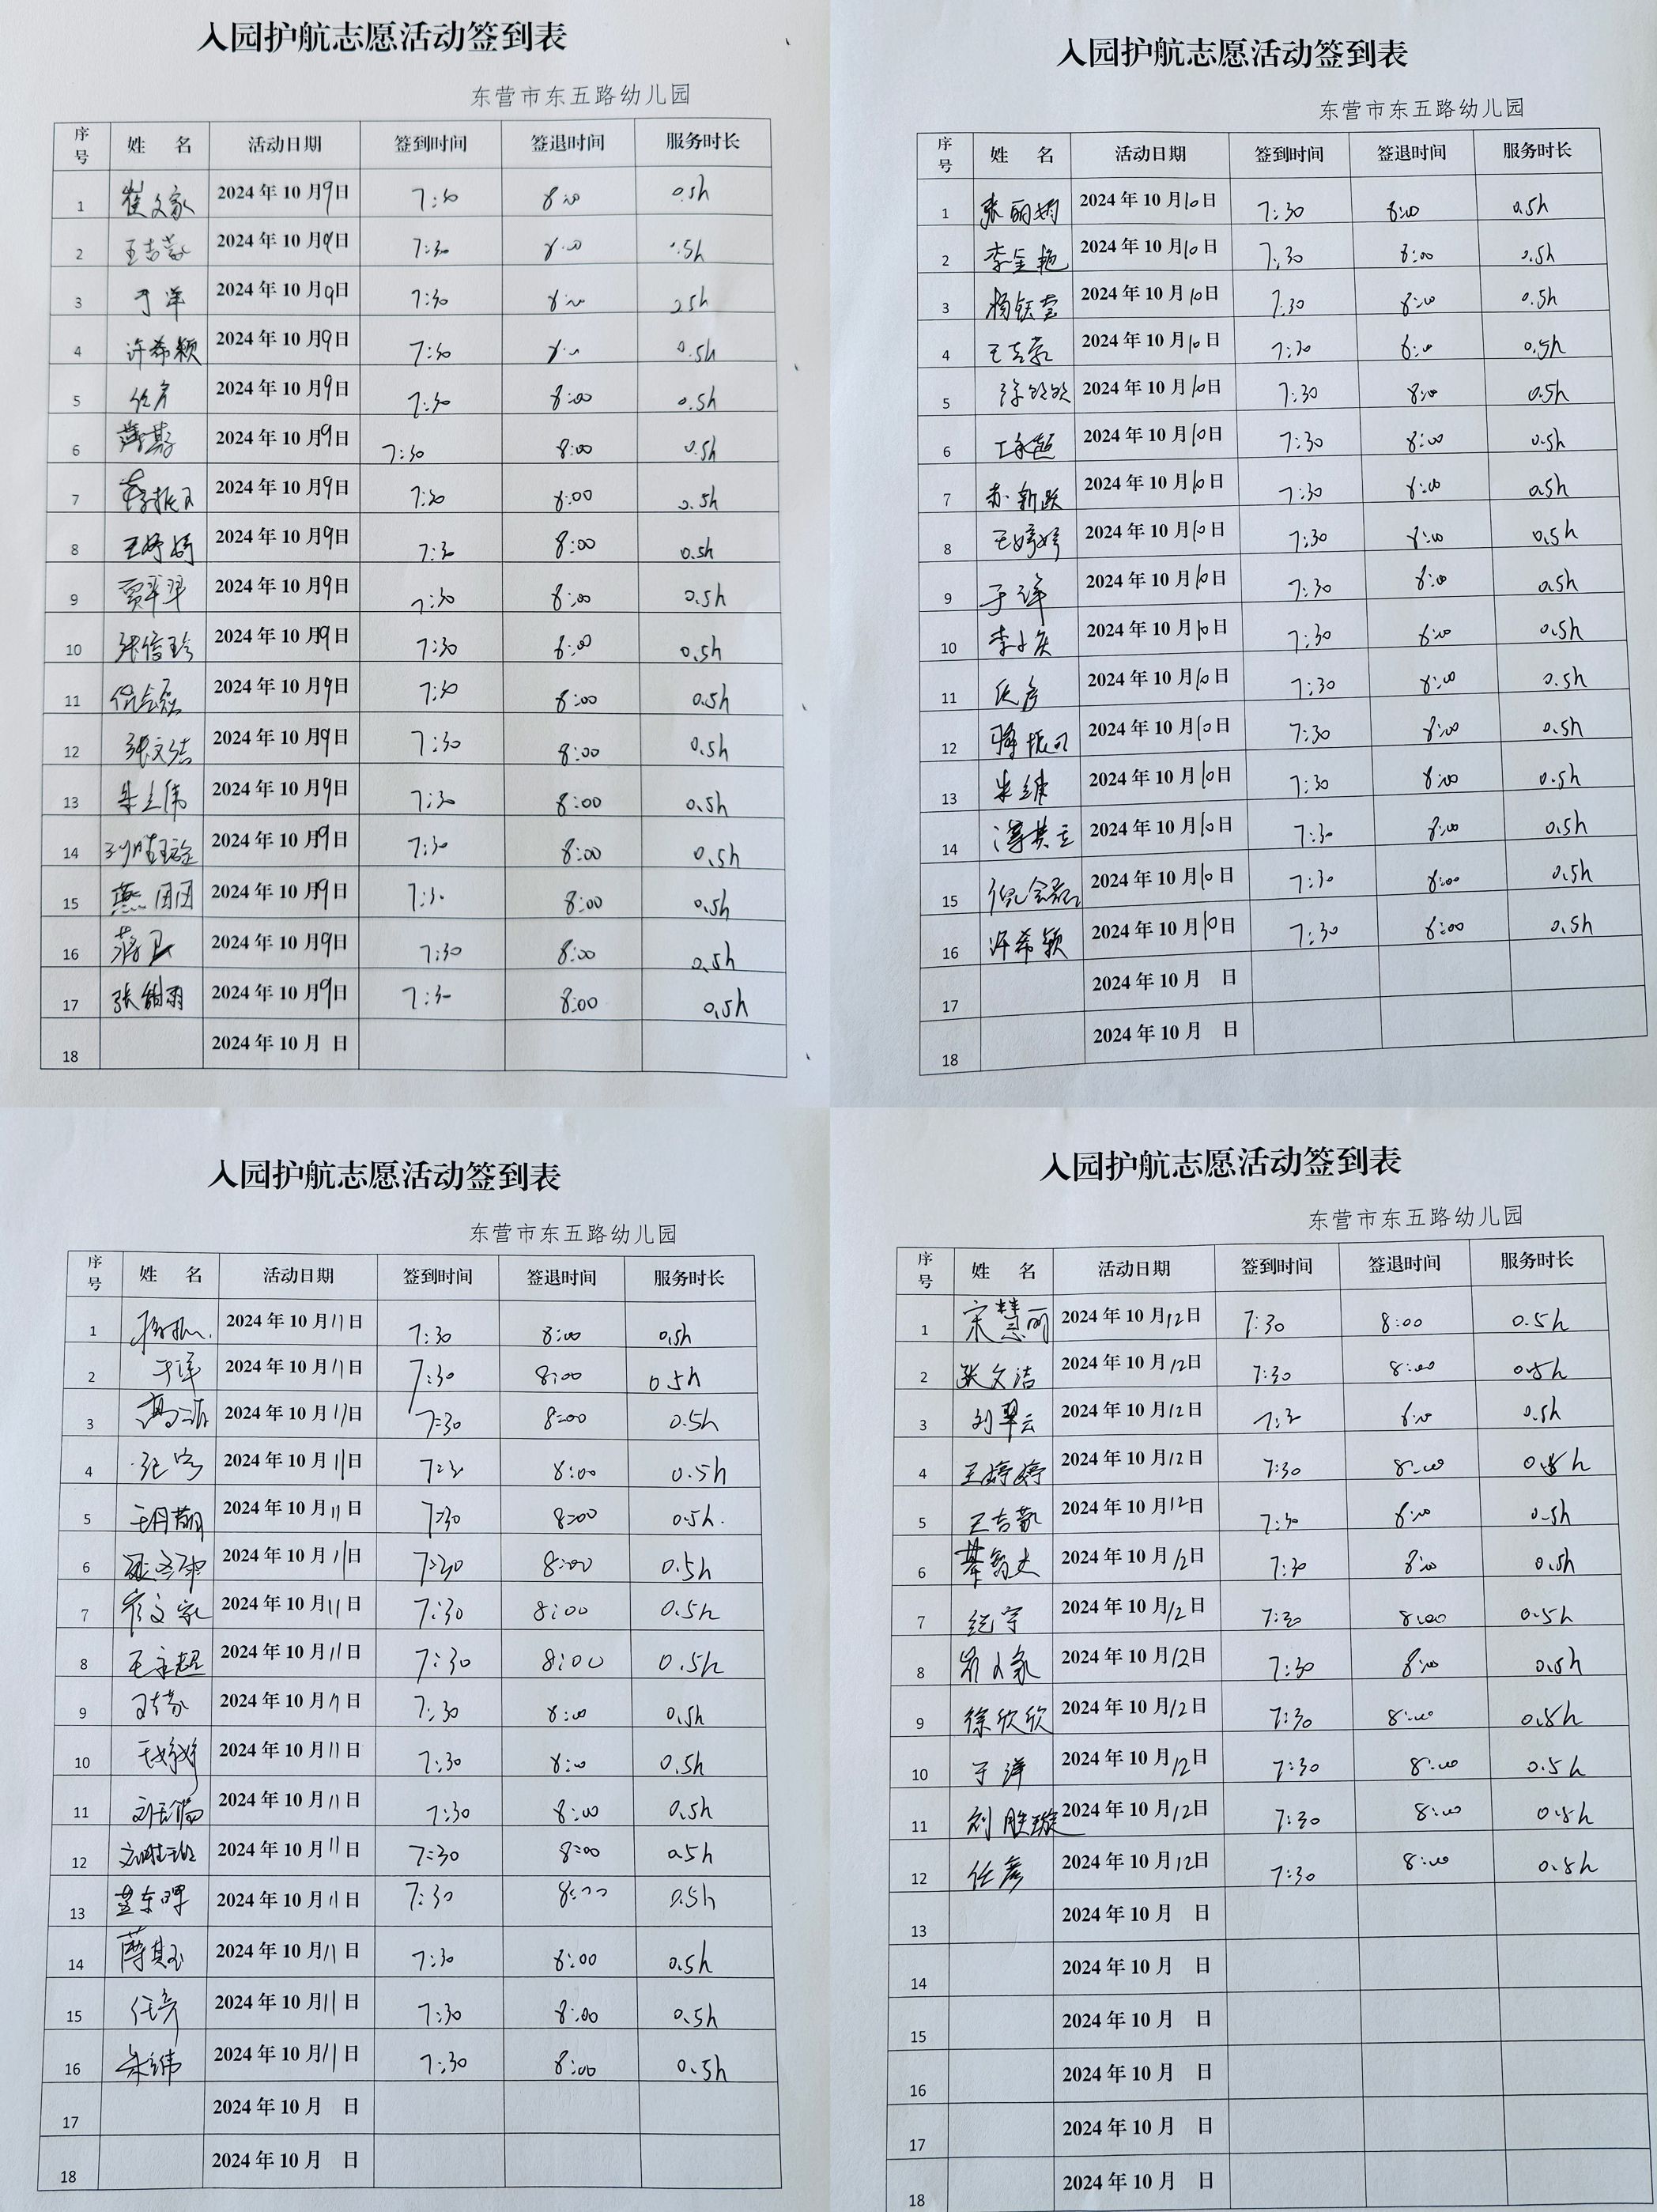 入园护航志愿活动签到表
东营市东五路幼儿园
序号 姓 名 活动日期 签到时间 签退时间 服务时长
1 崔文家 2024年10月9日 7:30 8:00 0.5h
2 王吉 2024年10月9日 7:30 8:00 0.5h
3 于洋 2024年10月9日 7:30 8:00 0.5h
4 许希颖 2024年10月9日 7:30 8:00 0.5h
5 任彦 2024年10月9日 7:30 8:00 0.5h
6 2024年10月9日 7:30 8:00 0.5h
7 2024年10月9日 7:30 8:00 0.5h
8 王婷婷 2024年10月9日 7:30 8:00 0.5h
9 贾翠翠 2024年10月9日 7:30 8:00 0.5h
10 张信珍 2024年10月9日 7:30 8:00 0.5h
11 倪会磊 2024年10月9日 7:30 8:00 0.5h
12 张文洁 2024年10月9日 7:30 8:00 0.5h
13 朱立伟 2024年10月9日 7:30 8:00 0.5h
14 刘胜璇 2024年10月9日 7:30 8:00 0.5h
15 燕团团 2024年10月9日 7:30 8:00 0.5h
16 蒋卫 2024年10月9日 7:30 8:00 0.5h
17 张雨 2024年10月9日 7:30 8:00 0.5h
18 2024年10月 日
入园护航志愿活动签到表
东营市东五路幼儿园
序号 姓 名 活动日期 签到时间 签退时间 服务时长
1 张丽娟 2024年10月10日 7:30 8:00 0.5h
2 李金艳 2024年10月10日 7:30 8:00 0.5h
3 杨钰莹 2024年10月10日 7:30 8:00 0.5h
4 王吉 2024年10月10日 7:30 8:00 0.5h
5 徐欣欣 2024年10月10日 7:30 8:00 0.5h
6 王永超 2024年10月10日 7:30 8:00 0.5h
7 苏新跃 2024年10月10日 7:30 8:00 0.5h
8 王婷婷 2024年10月10日 7:30 8:00 0.5h
9 于洋 2024年10月10日 7:30 8:00 0.5h
10 李小庆 2024年10月10日 7:30 8:00 0.5h
11 任彦 2024年10月10日 7:30 8:00 0.5h
12 2024年10月10日 7:30 8:00 0.5h
13 朱 2024年10月10日 7:30 8:00 0.5h
14 2024年10月10日 7:30 8:00 0.5h
15 倪会磊 2024年10月10日 7:30 8:00 0.5h
16 许希颖 2024年10月10日 7:30 8:00 0.5h
17 2024年10月 日
18 2024年10月 日
入园护航志愿活动签到表
东营市东五路幼儿园
序号 姓 名 活动日期 签到时间 签退时间 服务时长
1 2024年10月11日 7:30 8:00 0.5h
2 于洋 2024年10月11日 7:30 8:00 0.5h
3 2024年10月11日 7:30 8:00 0.5h
4 纪宇 2024年10月11日 7:30 8:00 0.5h
5 2024年10月11日 7:30 8:00 0.5h
6 2024年10月11日 7:30 8:00 0.5h
7 崔文家 2024年10月11日 7:30 8:00 0.5h
8 王永超 2024年10月11日 7:30 8:00 0.5h
9 2024年10月11日 7:30 8:00 0.5h
10 王婷婷 2024年10月11日 7:30 8:00 0.5h
11 2024年10月11日 7:30 8:00 0.5h
12 刘胜璇 2024年10月11日 7:30 8:00 0.5h
13 2024年10月11日 7:30 8:00 0.5h
14 2024年10月11日 7:30 8:00 0.5h
15 任彦 2024年10月11日 7:30 8:00 0.5h
16 朱 2024年10月11日 7:30 8:00 0.5h
17 2024年10月 日
18 2024年10月 日
入园护航志愿活动签到表
东营市东五路幼儿园
序号 姓 名 活动日期 签到时间 签退时间 服务时长
1 宋慧丽 2024年10月12日 7:30 8:00 0.5h
2 张文洁 2024年10月12日 7:30 8:00 0.5h
3 刘翠云 2024年10月12日 7:30 8:00 0.5h
4 王婷婷 2024年10月12日 7:30 8:00 0.5h
5 王吉 2024年10月12日 7:30 8:00 0.5h
6 2024年10月12日 7:30 8:00 0.5h
7 纪宇 2024年10月12日 7:30 8:00 0.5h
8 崔文家 2024年10月12日 7:30 8:00 0.5h
9 徐欣欣 2024年10月12日 7:30 8:00 0.5h
10 于洋 2024年10月12日 7:30 8:00 0.5h
11 刘胜璇 2024年10月12日 7:30 8:00 0.5h
12 任彦 2024年10月12日 7:30 8:00 0.5h
13 2024年10月 日
14 2024年10月 日
15 2024年10月 日
16 2024年10月 日
17 2024年10月 日
18 2024年10月 日